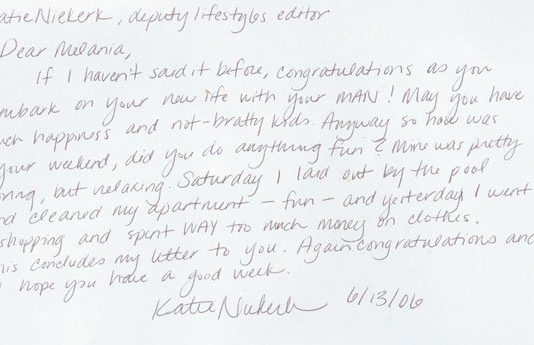 atie Niekerk, deputy lifestyles editor
Dear Melania,
If I haven't said it before, congratulations as you
mbark on your new life with your MAN! May you have
uch happiness and not-bratty kids. Anyway so how was
your weekend, did you do anything fun? Mine was pretty
oring, but relaxing. Saturday I laid out by the pool
nd cleaned my apartment - fun - and yesterday I went
shopping and spent WAY too much money on clothes.
his concludes my letter to you. Again congratulations and
I hope you have a good week.
Katie Niekerk 6/13/06